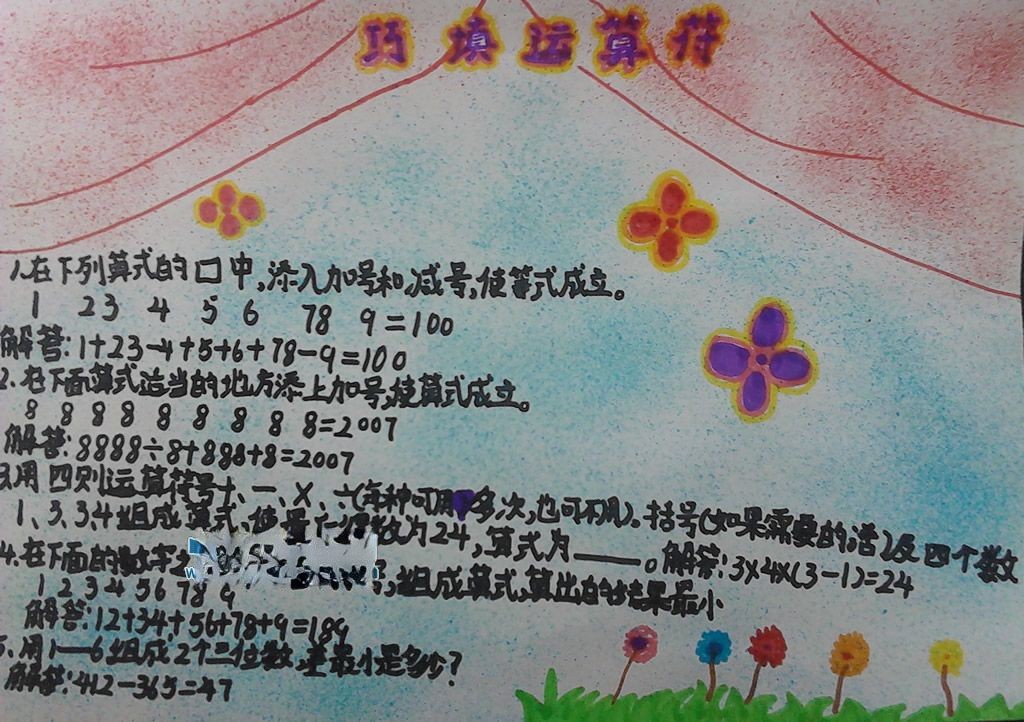 巧填运算符
1.在下列算式的口中,添入加号和减号,使等式成立。
1 23 4 5 6 78 9=100
解答:1+23-4+5+6+78-9=100
2.在下面算式适当的地方添上加号,使算式成立。
8 8 8 8 8 8 8 8 8=2007
解答:8888÷8+888+8=2007
3.用四则运算符号+、一、X、÷(每种可用多次,也可不用)、括号(如果需要的话)及四个数
1、3、3、4组成算式,使最后得数为24,算式为____。解答:3×4×(3-1)=24
4.在下面的数字之 ,组成算式,算出的结果最小
1 2 3 4 5 6 7 8 9
解答:12+34+56+78+9=189
5.用1—6组成2个三位数,差最小是多少?
解答:412-365=47